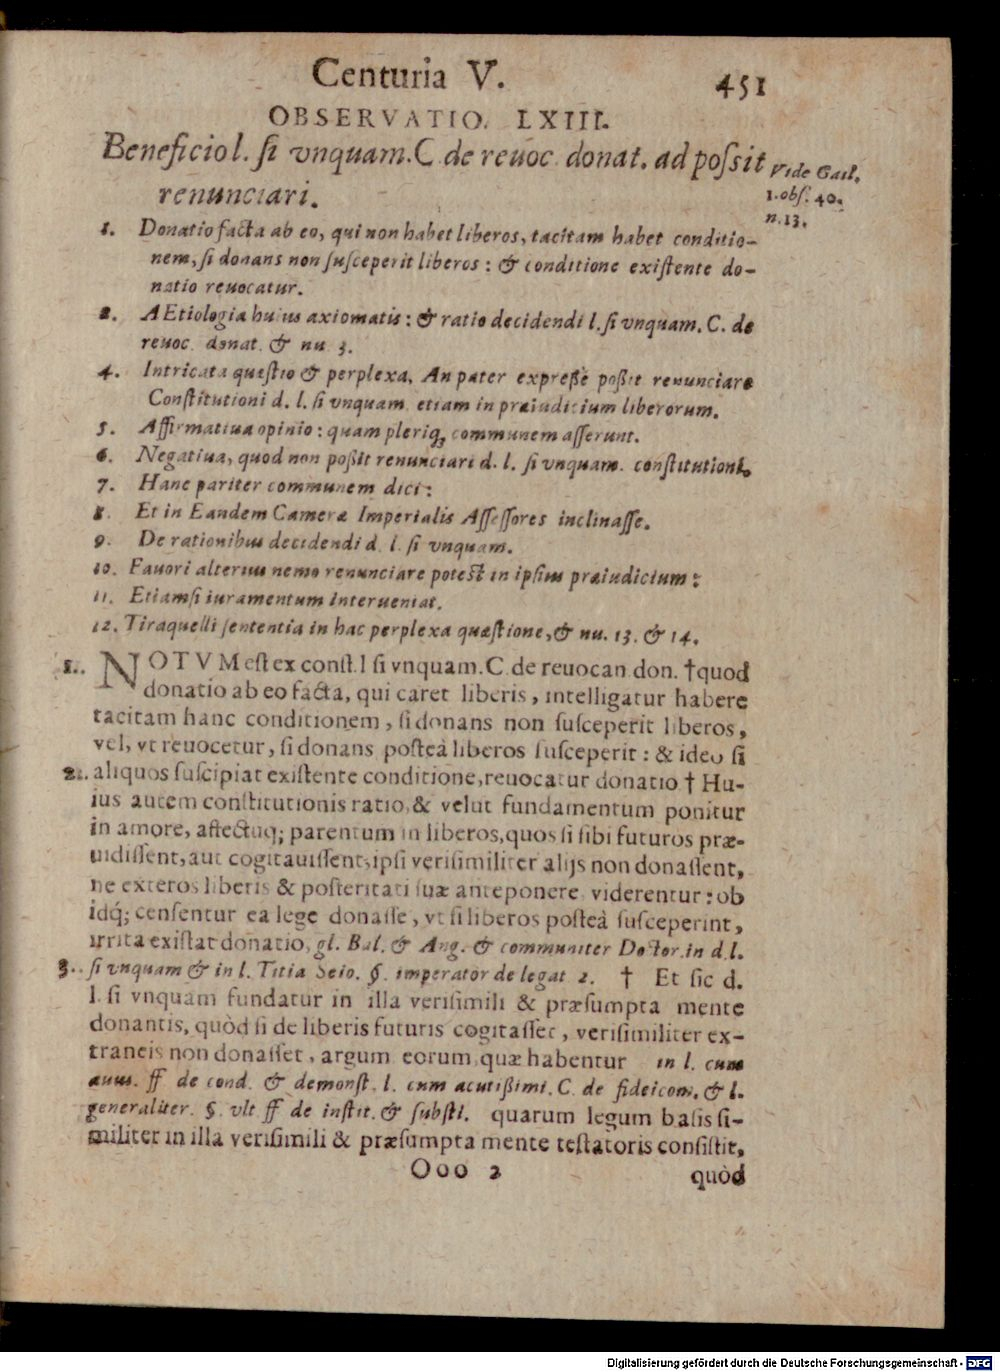 Centuria V. 451
OBSERVATIO. LXIII.
Beneficio l. ſi vnquam. C de reuoc. donat. ad poſsit
renunciari.
Vide Gail.
1. obſ. 40.
n. 13.
1. Donatio facta ab eo, qui non habet liberos, tacitam habet conditio-
nem, ſi donans non ſuſceperit liberos: & conditione exiſtente do-
natio reuocatur.
2. AEtiologia huius axiomatis: & ratio decidendi l. ſi vnquam. C. de
reuoc. donat. & nu. 3.
4. Intricata quæſtio & perplexa, An pater expreßè poßit renunciare
Conſtitutioni d. l. ſi vnquam. etiam in præiudicium liberorum.
5. Affirmatiua opinio: quam pleriq; communem aſſerunt.
6. Negatiua, quod non poßit renunciari d. l. ſi vnquam. conſtitutioni.
7. Hanc pariter communem dici:
8. Et in Eandem Cameræ Imperialis Aſſeſſores inclinaſſe.
9. De rationibus decidendi d. l. ſi vnquam.
10. Fauori alterius nemo renunciare poteſt in ipſius præiudicium:
11. Etiamſi iuramentum interueniat.
12. Tiraquelli ſententia in hac perplexa quæſtione, & nu. 13. & 14.
1. NOTVM eſt ex conſt. l ſi vnquam. C. de reuocan. don. † quod
donatio ab eo facta, qui caret liberis, intelligatur habere
tacitam hanc conditionem, ſi donans non ſuſceperit liberos,
vel, vt reuocetur, ſi donans poſteà liberos ſuſceperit: & ideo ſi
2. aliquos ſuſcipiat exiſtente conditione, reuocatur donatio † Hu-
ius autem conſtitutionis ratio, & velut fundamentum ponitur
in amore, affectuq; parentum in liberos, quos ſi ſibi futuros præ-
uidiſſent, aut cogitauiſſent, ipſi veriſimiliter alijs non donaſſent,
ne exteros liberis & poſteritati ſuæ anteponere viderentur: ob
idq́; cenſentur ea lege donaſſe, vt ſi liberos poſteà ſuſceperint,
irrita exiſtat donatio, gl. Bal. & Ang. & communiter Doctor. in d. l.
3. ſi vnquam & in l. Titia Seio. §. imperator de legat 2. † Et ſic d.
l. ſi vnquam fundatur in illa veriſimili & præſumpta mente
donantis, quòd ſi de liberis futuris cogitaſſet, veriſimiliter ex-
traneis non donaſſet, argum. eorum, quæ habentur in l. cum
auus. ff de cond. & demonſt. l. cum acutißimi. C. de fideicom. & l.
generaliter. §. vlt ff de inſtit. & ſubſti. quarum legum baſis ſi-
militer in illa veriſimili & præſumpta mente teſtatoris conſiſtit,
Ooo 2 quòd
Digitalisierung gefördert durch die Deutsche Forschungsgemeinschaft - DFG